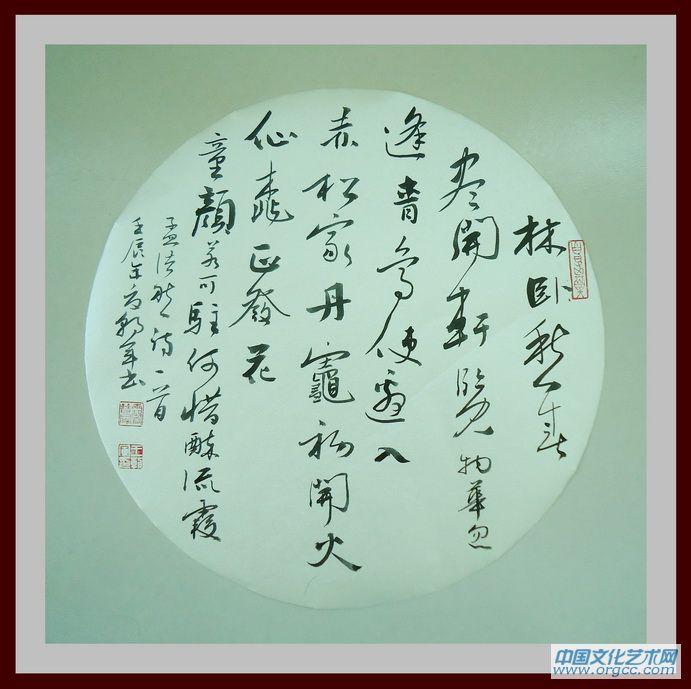 林卧愁春
尽開軒覧物華忽
逢青鸟使邀入
赤松家丹竈初開火
仙桃正發花
童顔若可駐何惜醉流霞
孟浩然诗一首
壬辰年
中国文化艺术网
www.orgcc.com